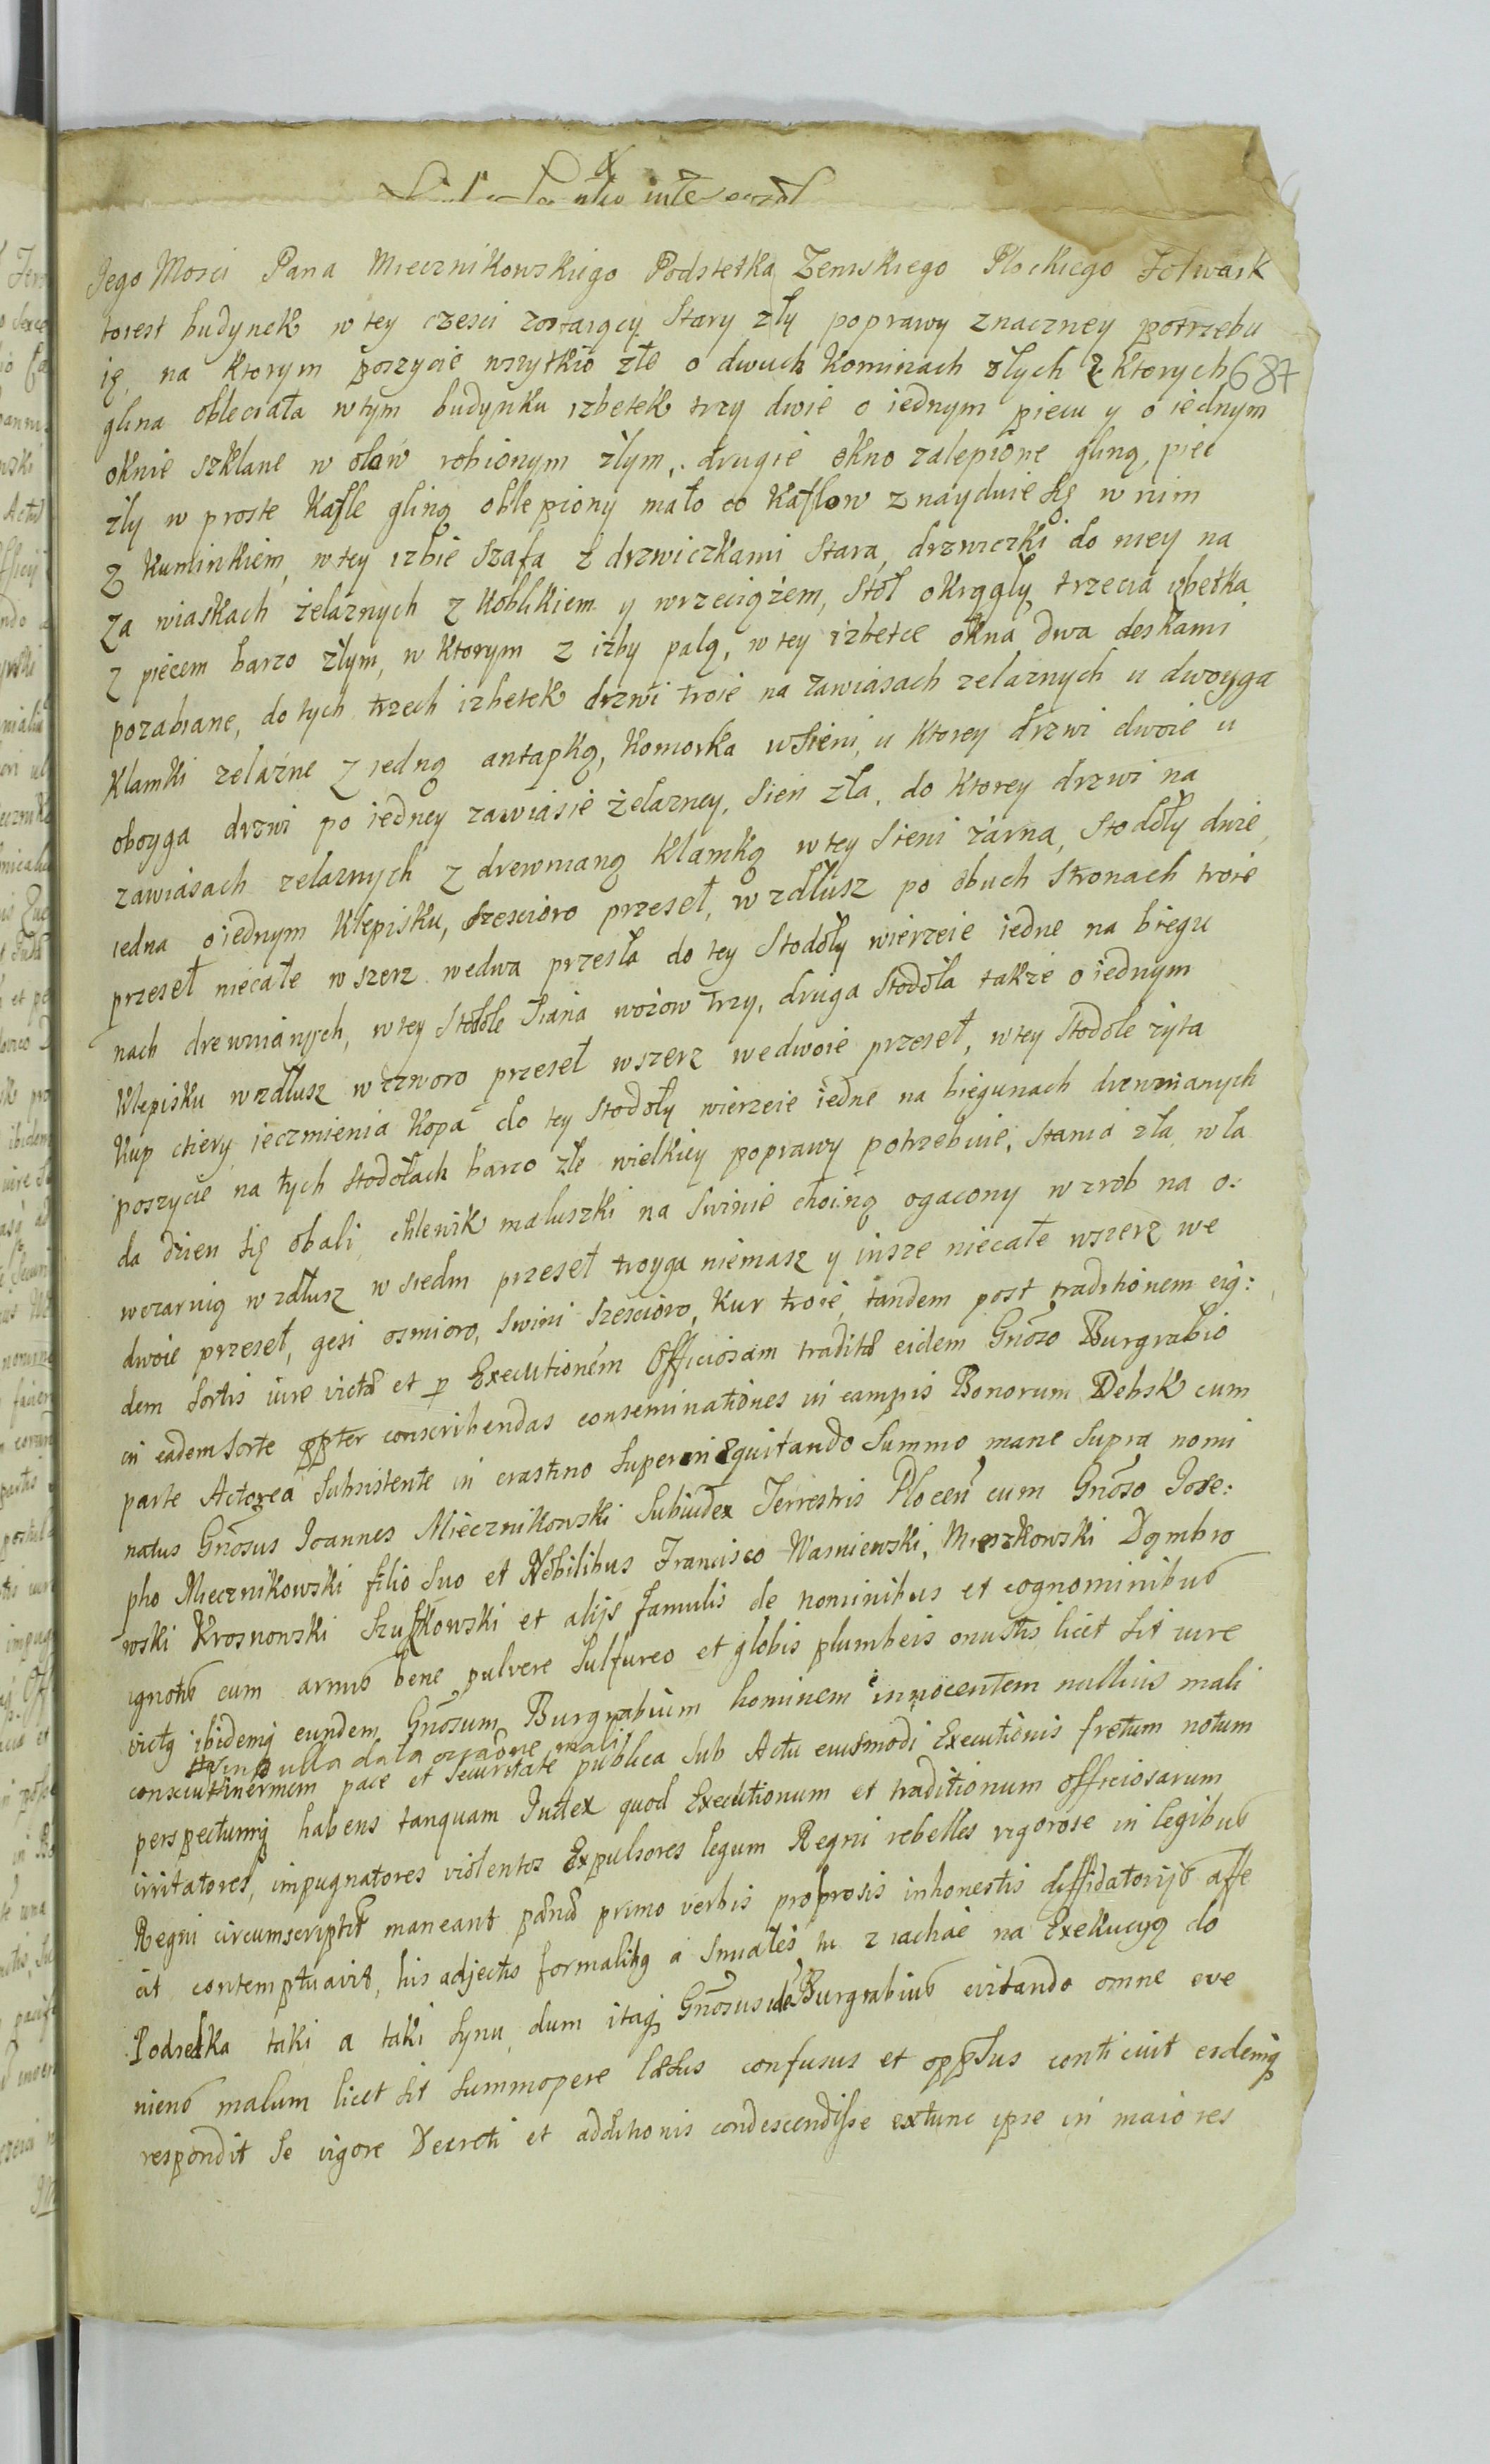 Jego Mosci Pana Miecznikowskiego Podsetka Zemskiego Plockiego Folwark
iorest budynek w tey czesci zostaiący Stary zły poprawy znaczney potrzebu
ię, na ktorym poszycie wszytkio złe o dwuch kominach złych z ktorych 687
glina obleciała w tym budynku izbetek trzy dwie o iednym piecu y o iednym
oknie szklane w ołow robionym złym, drugie okno zalepione gliną, piec
zły w proste Kafle gliną oblepiony mało co Kaflow znayduie się w nim
z Kuminkiem, w tey izbie Szafa z drzwiczkami Stara, drzwiczki do niey na
za wiaskach żelaznych z Koblikiem y wrzeciążem, Stół okrągły, trzecia izbetka
z piecem barzo złym, w ktorym z izby palą, w tey izbetce okna dwa deskami
pozabiane, do tych trzech izbetek drzwi troie na zawiasach zelaznych u dwoyga
Klamki zelazne z iedną antapką, Komorka w Sieni, u Ktorey drzwi dwoie u
oboyga drzwi po iedney zawiasie żelazney, Sien zła, do Ktorey drzwi na
zawiasach zelaznych z drewnianą Klamką w tey Sieni żarna, Stodoły dwie,
iedna o iednym Klepisku, Szescioro przeseł, w zdłusz po obuch Stronach troie
przeseł niecałe w szerz wedwa przesła do tey Stodoły wierzeie iedne na biegu
nach drewnianych, w tey Stodole Siana wozow trzy, druga Stodoła także o iednym
Klepisku wzdłusz wczworo przeseł wszerz wedwoie przeseł, w tey Stodole żyta
Kup cztery ieczmienia Kopa do tey Stodoły wierzeie iedne na biegunach drzwnianych
poszycie na tych Stodołach barzo złe wielkiey poprawy potrzebuie, Stania zła, w la
da dzien się obali, chlewik maluszki na Swinie choiną ogacony w zrob na o:
wczarnią wzdłusz w siedm przeseł troyga niemasz y insze niecałe wszerz we
dwoie przeseł, gesi osmioro, Swini Szescioro, Kur troie, tandem post traditionem eią:
dem Sortis iure victa et p Executionem Officiosam tradita eidem Gnoso Burgrabio
in eadem Sorte ppter conscribendas conseminationes in campis Bonorum Debsk cum
parte Actorea Subsistente in crastino Superinequitando Summo mane Supra nomi
natus Gnosus Joannes Miecznikowski Subiudex Terrestris Plocen cum Gnoso Jose:
pho Miecznikowski filio Suo et Nobilibus Francisco Wasniewski, Mieszkowski Dombro
wski Krosnowski Szuszkowski et alijs famulis de nominibus et cognominibus
ignotis cum armis bene pulvere Sulfureo et globis plumbeis onustis licet Sit iure
victq ibidemq eundem Gnosum Burgrabium hominem innocentem nullius mali
in nulla data occasione mali
conscium inermem pace et Securitate publica Sub Actu eiusmodi Executionis fretum notum
perspectumq habens tanquam Judex quod Executionum et traditionum officiosarum
irritatores, impugnatores violentos Expulsores legum Regni rebelles rigorose in legibus
Regni circumscriptis maneant primo verbis probrosis inhonestis diffidatorijs affe
cit contemptuavit, his adjectis formalibq a Smiałeś tu z iachać na Exekucyą do
Podsetka taki a taki Synu, dum itaq Gnosus ide Burgrabius evitando omne eve
niens malum licet Sit Summopere læsus confusus et oppssus conticuit eidemq
respondit Se vigore Decreti et additionis condescendisse extunc ipse in maiores